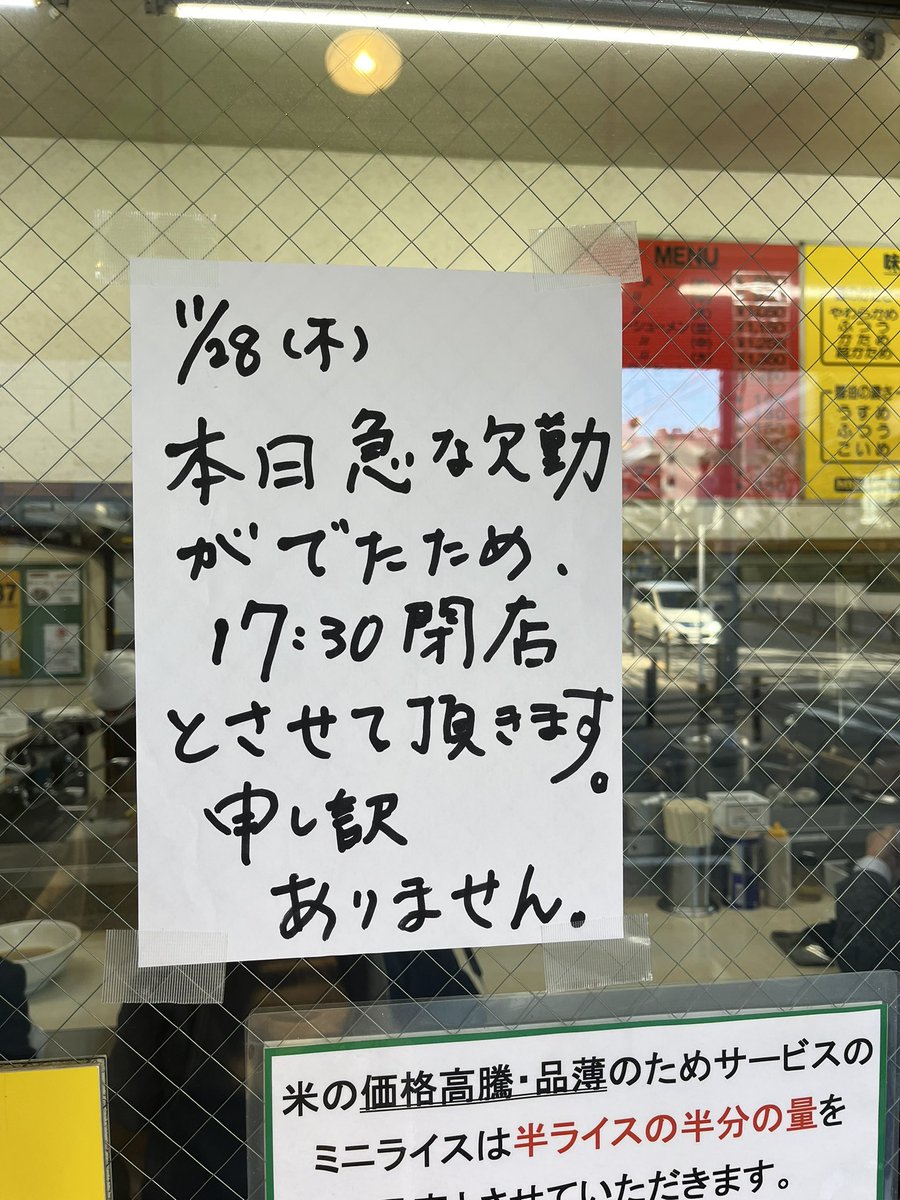 11/28(木)
本日急な欠勤
がでたため、
17:30閉店
とさせて頂きます。
申し訳
ありません。
MENU
味
やわらかめ
ふつう
かため
うすめ
ふつう
こいめ
米の価格高騰・品薄のためサービスの
ミニライスは半ライスの半分の量を
させていただきます。